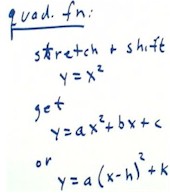 quad. fn:
stretch + shift
y = x²
get
y = ax² + bx + c
or
y = a(x-h)² + k